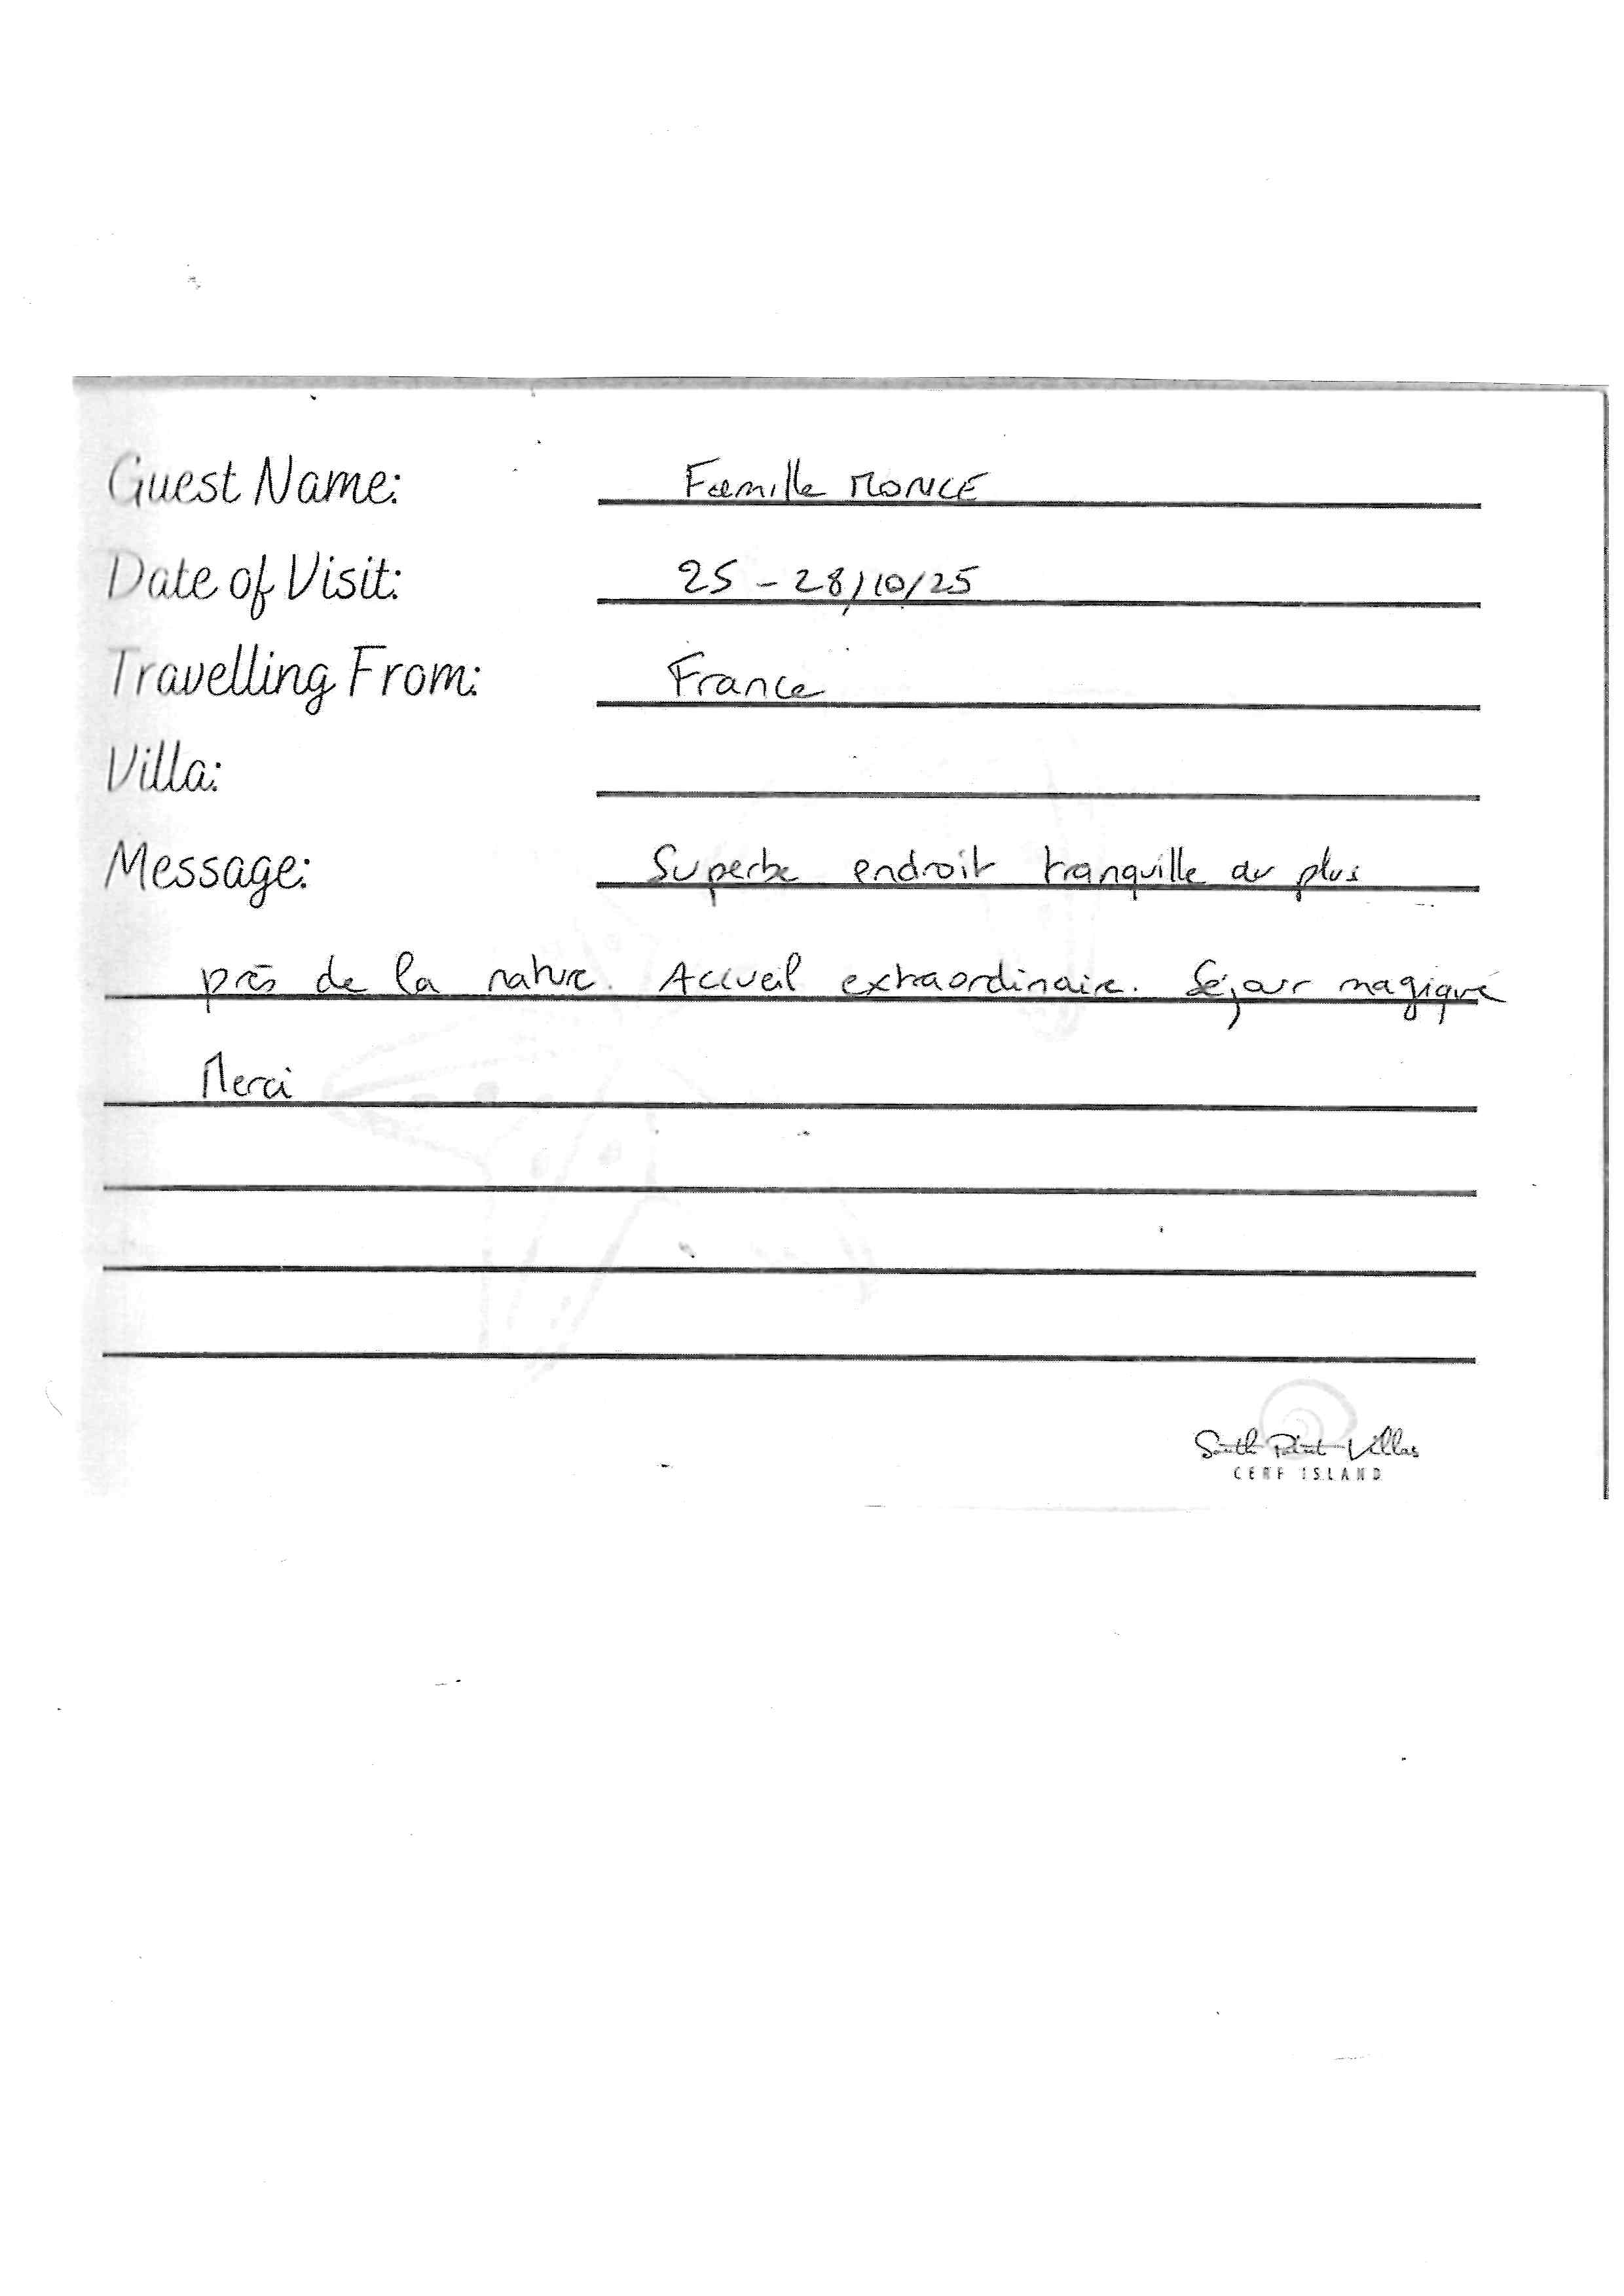 Guest Name: Famille MONCE
Date of Visit: 25 - 28/10/25
Travelling From: France
Villa:
Message: Superbe endroit tranquille au plus
près de la nature. Accueil extraordinaire. Séjour magique
Merci
South Point Villas
CERF ISLAND